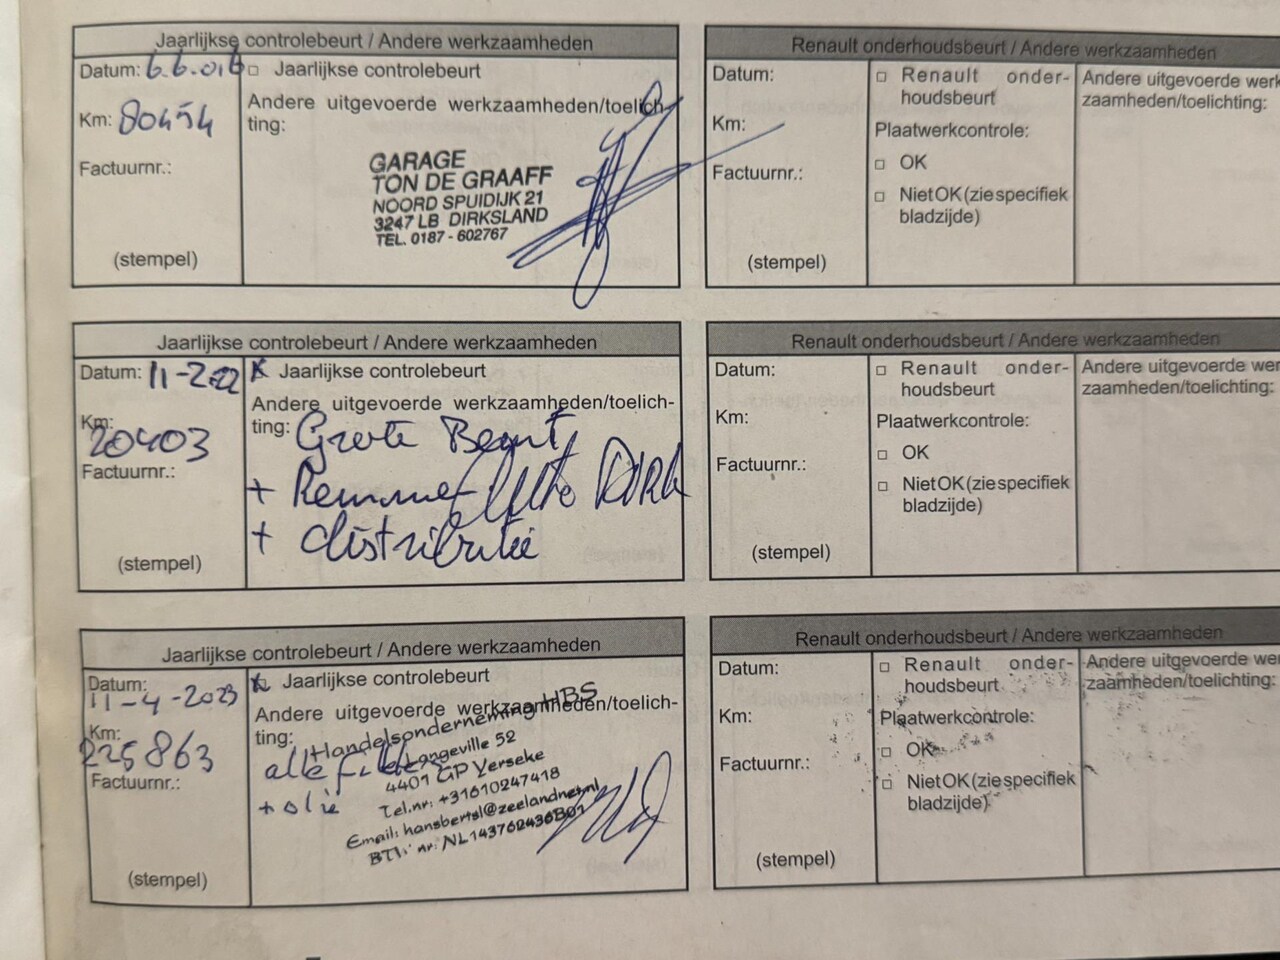 Jaarlijkse controlebeurt / Andere werkzaamheden
Datum: 6.6.016
□ Jaarlijkse controlebeurt
Km: 80454
Andere uitgevoerde werkzaamheden/toelich-
ting:
Factuurnr.:
GARAGE
TON DE GRAAFF
NOORD SPUIDIJK 21
3247 LB DIRKSLAND
TEL. 0187 - 602767
(stempel)
Renault onderhoudsbeurt / Andere werkzaamheden
Datum:
Km:
Factuurnr.:
(stempel)
□ Renault onder-
houdsbeurt
Plaatwerkcontrole:
□ OK
□ Niet OK (zie specifiek
bladzijde)
Andere uitgevoerde werk
zaamheden/toelichting:
Jaarlijkse controlebeurt / Andere werkzaamheden
Datum: 11-2-22
Jaarlijkse controlebeurt
Km:
20403
Andere uitgevoerde werkzaamheden/toelich-
ting: Grote Beurt
+ Remmen
+ distributie
Factuurnr.:
(stempel)
Renault onderhoudsbeurt / Andere werkzaamheden
Datum:
Km:
Factuurnr.:
(stempel)
□ Renault onder-
houdsbeurt
Plaatwerkcontrole:
□ OK
□ Niet OK (zie specifiek
bladzijde)
Andere uitgevoerde wer
zaamheden/toelichting:
Jaarlijkse controlebeurt / Andere werkzaamheden
Datum:
11-4-2023
Jaarlijkse controlebeurt
Km:
225863
Andere uitgevoerde werkzaamheden/toelich-
ting:
alle filters
+ olie
Factuurnr.:
Handelsonderneming HBS
Langeville 52
4401 GP Yerseke
Tel.nr: +31610247418
Email: hansbertsl@zeelandnet.nl
BTW nr: NL143762436B01
(stempel)
Renault onderhoudsbeurt / Andere werkzaamheden
Datum:
Km:
Factuurnr.:
(stempel)
□ Renault onder-
houdsbeurt
Plaatwerkcontrole:
□ OK
□ Niet OK (zie specifiek
bladzijde)
Andere uitgevoerde wer
zaamheden/toelichting: